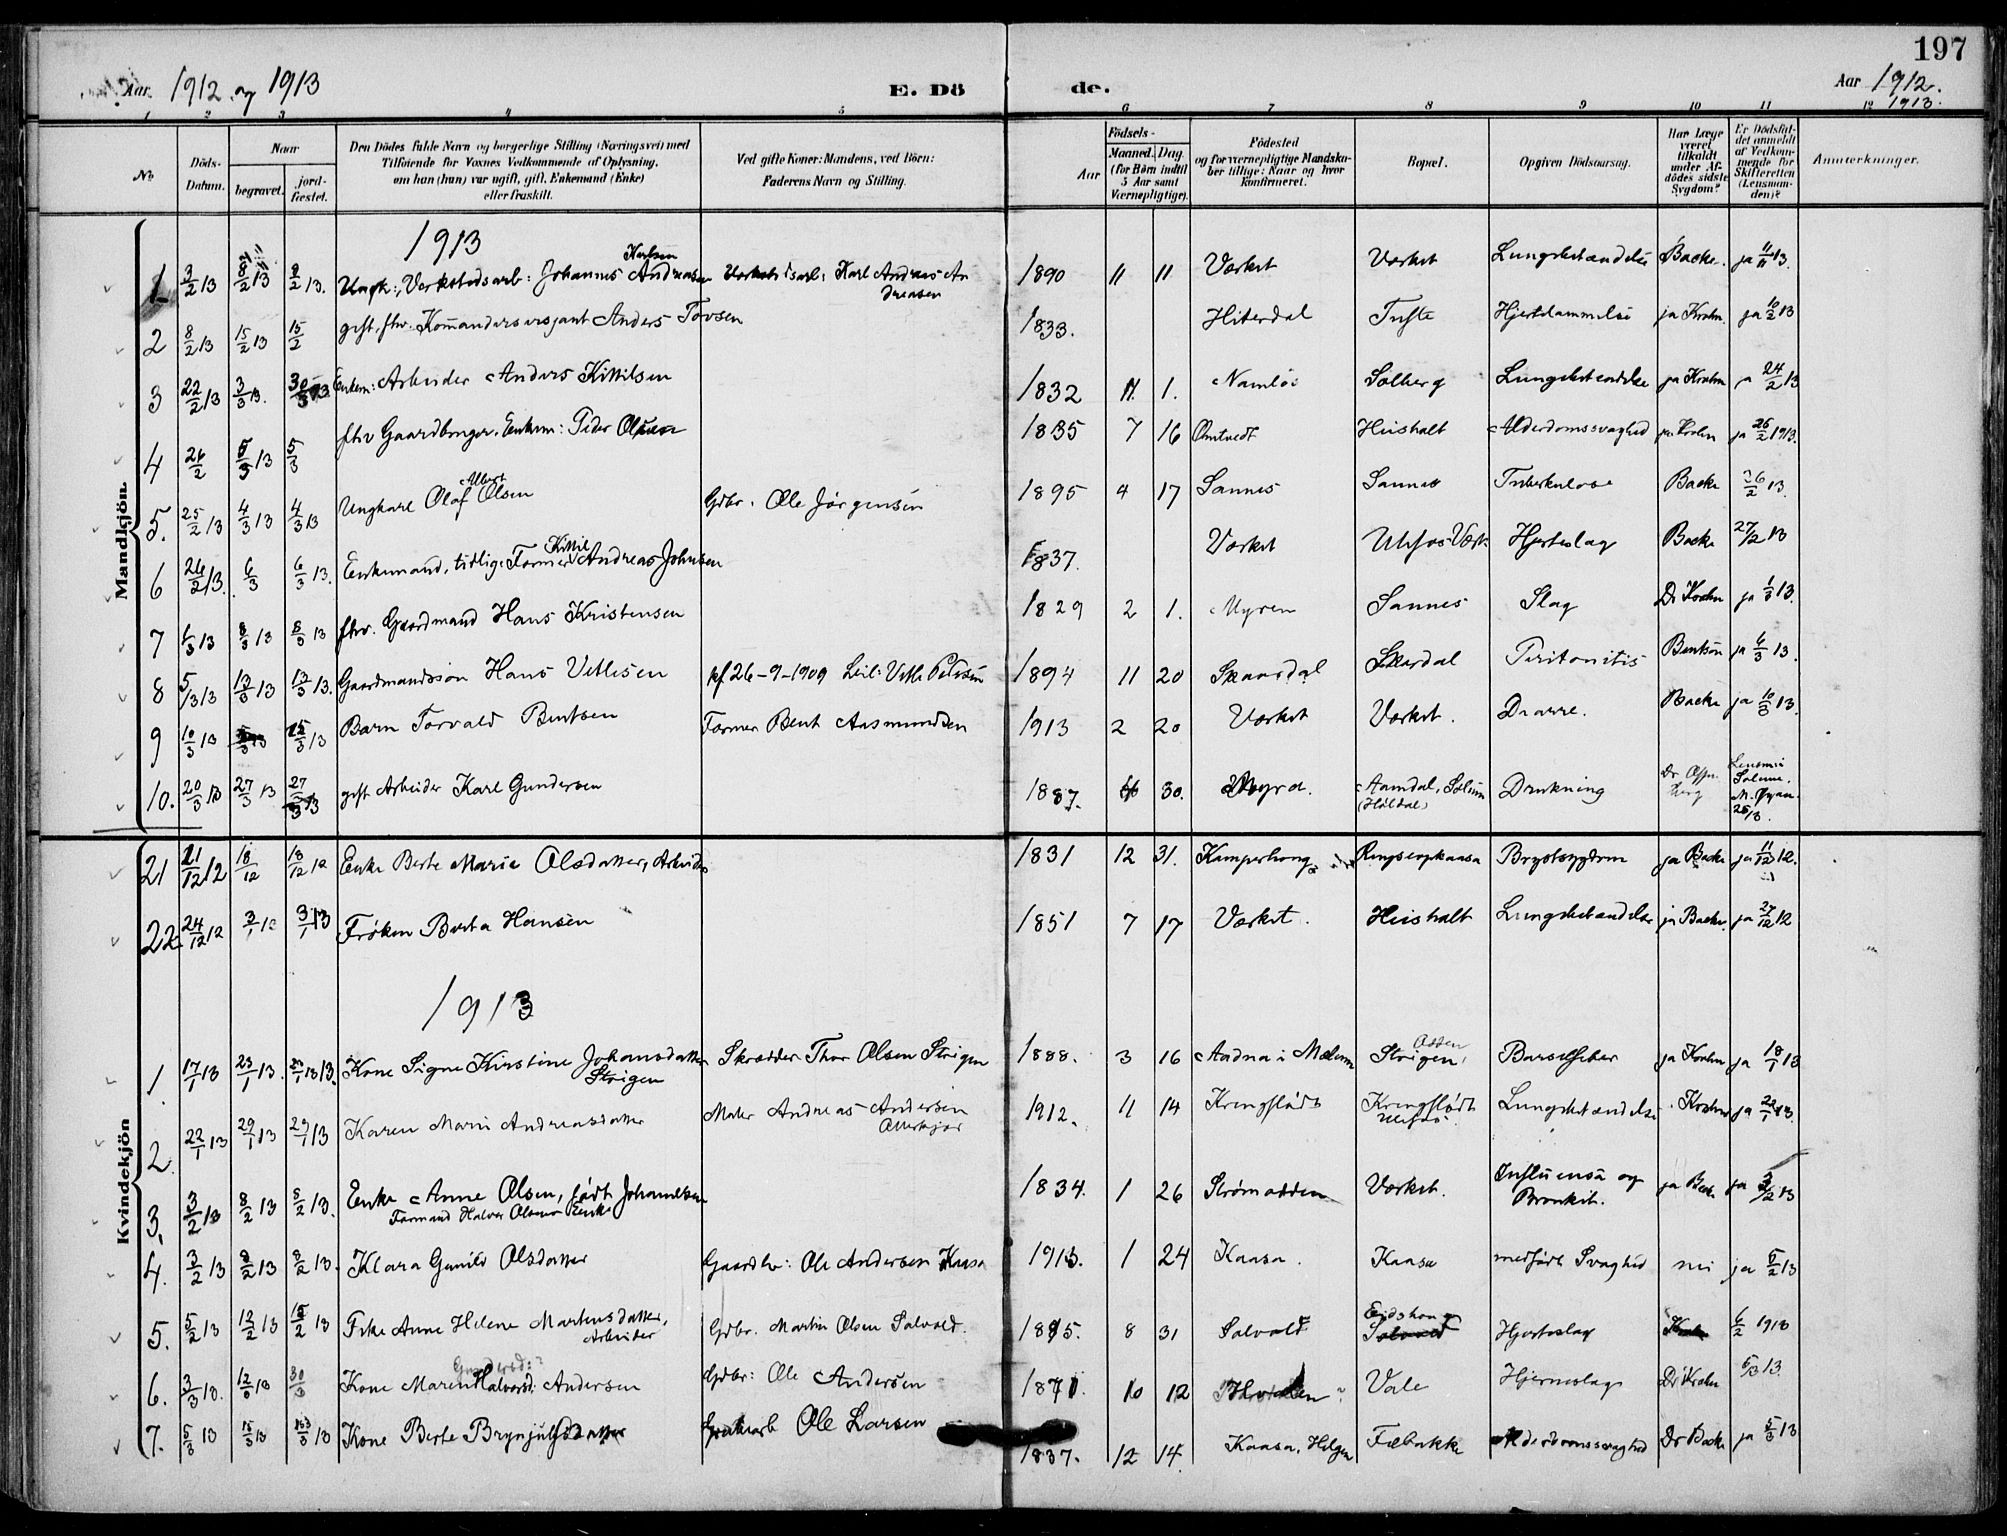 197
Aar 1912 og 1913
E. Dö de.
Aar 1912. 1913.
1 2 3 4 5 6 7 8 9 10 11 12
No
Döds-Datum.
Naar
begravet.
jord-fæstet.
Den Dödes fulde Navn og borgerlige Stilling (Næringsvei) med
Tilföiende for Voxnes Vedkommende af Oplysning,
om han (hun) var ugift, gift, Enkemand (Enke)
eller fraskilt.
Ved gifte Koner: Mandens, ved Börn:
Faderens Navn og Stilling.
Födsels-
Aar
Maaned. Dag.
(for Börn indtil
5 Aar samt
Værnepligtige).
Födested
og for værnepligtige Mandska-
ber tillige: Naar og hvor
konfirmeret.
Bopæl.
Opgiven Dödsaarsag.
Har Læge
været
tilkaldt
under Af-
dödes sidste
Sygdom?
Er Dödsfal-
det anmeldt
af Vedkom-
mende for
Skifteretten
(Lensman-
den)?
Anmærkninger.
Mandkjön.
1913
1 3/2 13 8/2 13 8/2 13. Ungk:, Verkstedsarb: Johannes Karlsen Andreasen Karl Andreas Andreasen 1890 11 11 Værket Værket Lungebetændelse Backe. ja 13.
2 8/2 13 15/2 13 15/2 gift, fhv. Anders Tovsen 1833. Hiterdal Tufte Hjertelammelse ja Krohn. ja 10/2 13
3 22/2 13 3/3 13. Enkem: Arbeider Anders Kittilsen 1832 11 1. Namlös Solberg Lungebetændelse ja Krohn ja 24/2 13
4 26/2 5/3 13 5/3 fhv Gaardbruger. Enkem: Peder Olsen 1835 7 16 Omtvedt Heisholt Alderdomssvaghed ja Krohn ja 26/2 1913.
5. 25/2 13 4/3 13 4/3 13 Ungkarl Olaf Albert Olsen Gdbr. Ole Jørgensen 1895 4 17 Sannes Sannes Tuberkulose Backe 26/2 13.
6 26/2 13. 6/3 6/3 13. Enkemand, tidlig: Former Kittil Andreas Johnsen 1837. Værket Ulefos Værk Hjerteslag Backe 27/2 13
7 1/3 13 8/3 13 8/3 13 fhv. Gaardmand Hans Kristensen 1829 2 1. Myren Sannes Slag Dr Krohn ja 1/3 13.
8 5/3 13 13/3 13 13/3 13. Gaardmandssøn Hans Vetlesen kf. 26-9-1909 Leil: Vetle Pedersen 1894 11 20 Skaardal Skardal Peritonitis Bentsön ja 6/3 13.
9 10/3 13 13 15/3 13 Barn Torvald Bentsen Former Bent Aasmundsen 1913 2 20 Værket Værket. Diarre. Backe ja 10/3 13.
10. 20/3 13 27/3 13 27/3 13 gift Arbeider Karl Gundersen 1887. 30. Myra. Aamdal, Solum (Høldal) Drukning Dr. Lensm i Solum. 25/3.
21 12 12 18/12 18/12 12 Enke Berte Marie Olsdatter, Arbeider 1831 12 31. Kamperhaug Ringsevjkaasa Brystsygdom ja Backe ja 11/12 12.
22 24/12 12 3/1 13 3/1 13 Frøken Berta Hansen 1851 7 17 Værket. Heisholt Lungebetændelse ja Backe. ja 27/12 12
Kvindekjön
1913
1 17/1 13 23/1 13. 23/1 13. Kone Signe Kirstine Johansdatter Strigen Skrædder Thor Olsen Strigen 1888. 3 16 Aadna i Mælum Strigen, Barselfeber ja Krohn ja 18/1 13
2. 22/1 13 29/1 13 29/1 13 Karen Marie Andreasdatter Maler Andreas Andersen 1912. 11 14 Kringflødt Kringflødt Ulefos. Lungebetændelse Krohn ja 22/1 13.
3. 3/2 13 8/2 13 8/2 13. Enke Anne Olsen, født Johannesen Formand Halvor Olsens Enke 1834. 1 26 Strømodden Værket. Influensa og Bronkit. ja Backe ja 3/2 13
4. 3/2 13 8/2 13 8/2 13. Klara Gunild Olsdatter Gaardbr: Ole Andersen Kaasa 1913. 1 24 Kaasa. Kaasa medfødt Svaghed nei ja 5/2 13
5. 5/2 13 12/2 13 15/2 13 Frke Anne Helene Martinsdatter, Arbeider Gdbr. Martin Olsen Salvold. 1895. 8 31 Salvold Eidshaug Hjerteslag 6/2 1913
6. 3/3 13. 12/3 13 30/3 Kone Maren Halvorsd: Andersen Gundersd:? Gdbr: Ole Andersen 1871. 10 12 Vale Hjerneslag Dr Krohn 5/3 13.
7. 5/3 13 15/3 13 13/3 13 Kone Berte Brynjulfsdatter Ole Larsen 1837. 12 14. Kaasa, Helgen Fæbakke Alderdomssvaghed Dr Backe ja 5/3 13